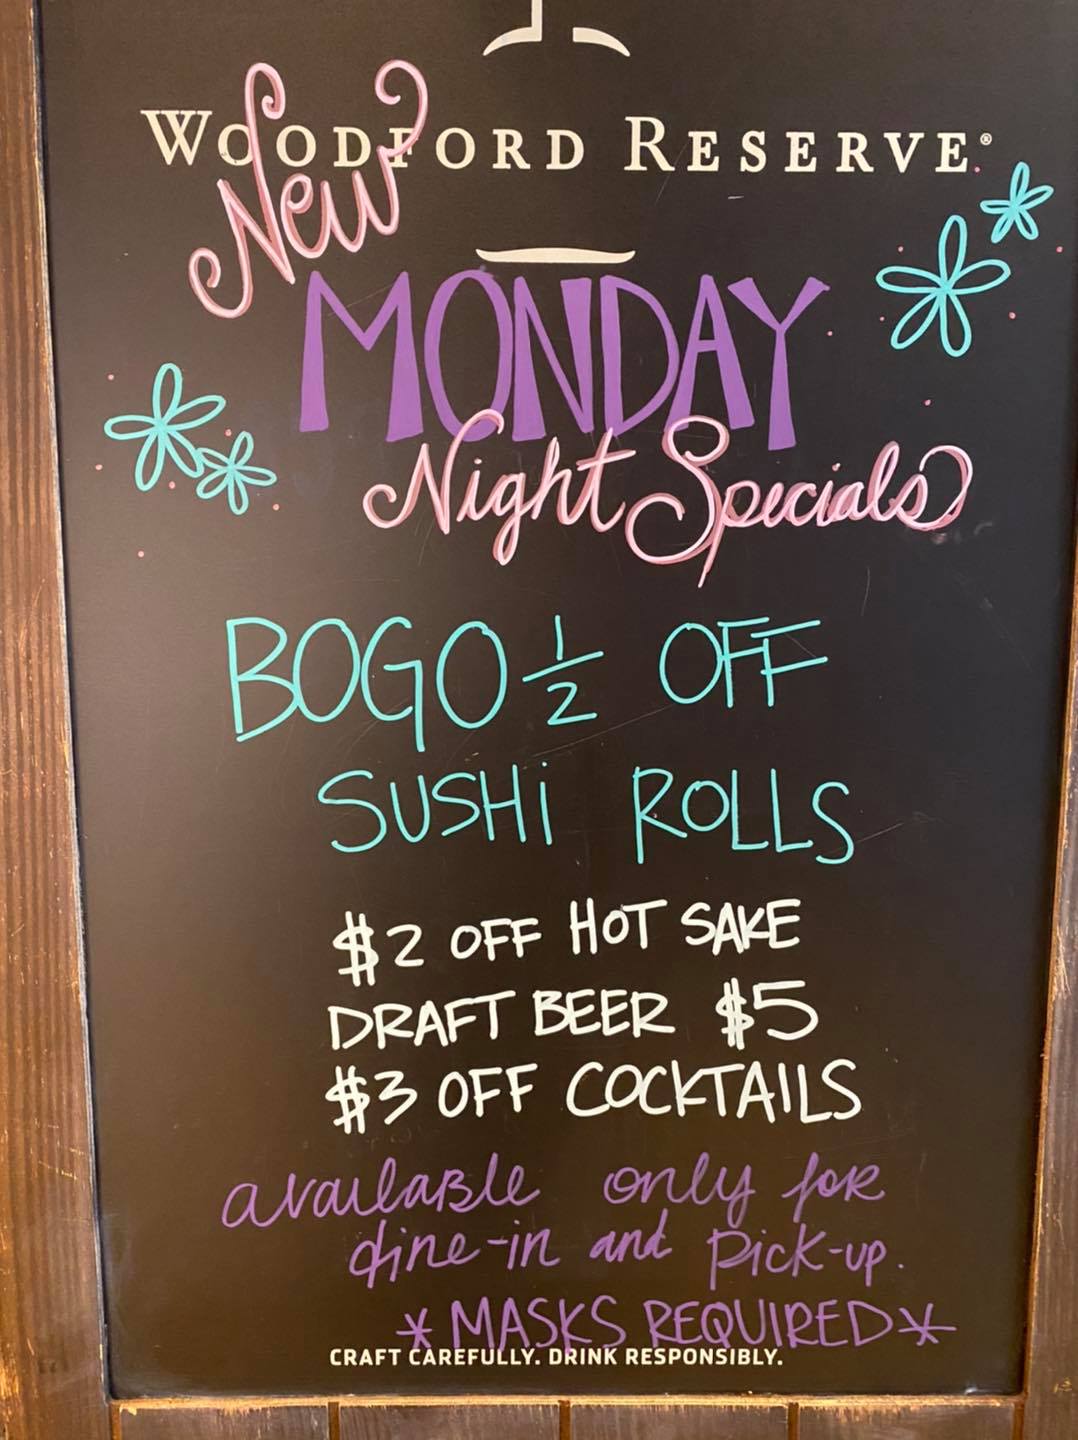 WOODFORD RESERVE®
New
MONDAY
Night Specials
BOGO 1/2 OFF
SUSHi ROLLS
$2 OFF HOT SAKE
DRAFT BEER $5
$3 OFF COCKTAILS
available only for
dine-in and pick-up.
*MASKS REQUIRED*
CRAFT CAREFULLY. DRINK RESPONSIBLY.